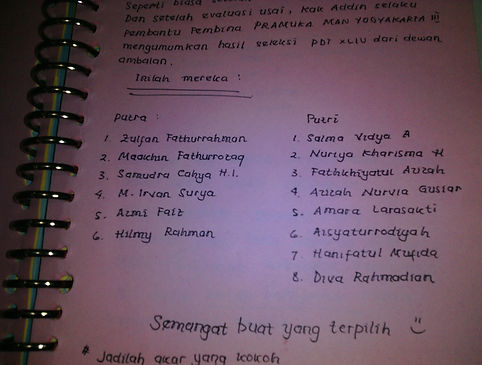 Seperti biasa
Dan setelah evaluasi usai, Kak Addin selaku
Pembantu Pembina PRAMUKA MAN YOGYAKARTA III
mengumumkan hasil seleksi PDT XLIV dari dewan
ambalan.
Inilah mereka :
Putra :
1. Zulfan Fathurrahman
2. Maakhin Fathurrozaq
3. Samudra Cahya H.I.
4. M. Irvan Surya
5. Azmi Faiz
6. Hilmy Rahman
Putri
1. Salma Vidya A
2. Nuriya Kharisma H
3. Fathkhiyatul Azizah
4. Azizah Nurvia Gusiar
5. Amara Larasakti
6. Aisyaturrodiyah
7. Hanifatul Mufida
8. Diva Rahmadian
Semangat buat yang terpilih
* Jadilah akar yang kokoh